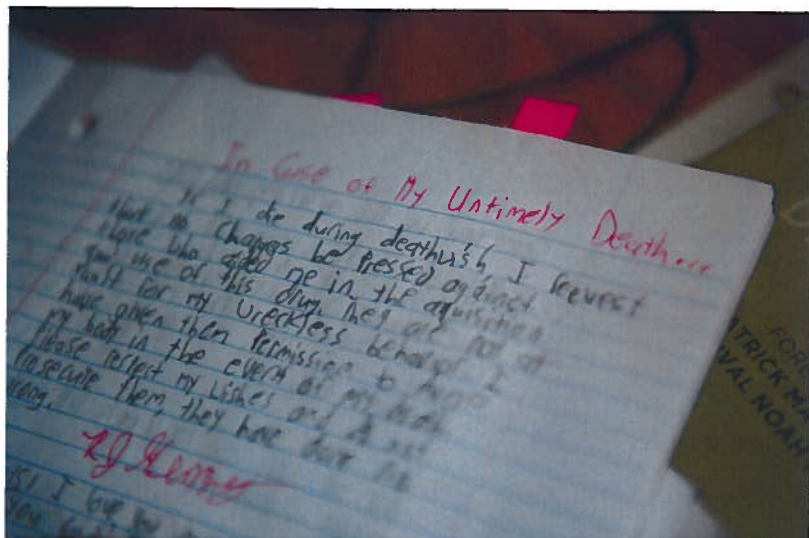 In Case of My Untimely Death...
If I die during deathwish, I request
that no charges be pressed against
those who aided me in the aquisition
and use of this drug. They are not at
fault for my wreckless behavior. I
have given them permission to
my body in the event of my death.
Please respect my wishes and do not
prosecute them, they have done no
wrong.
I
FOR
ATRICK M
VAL NOAH